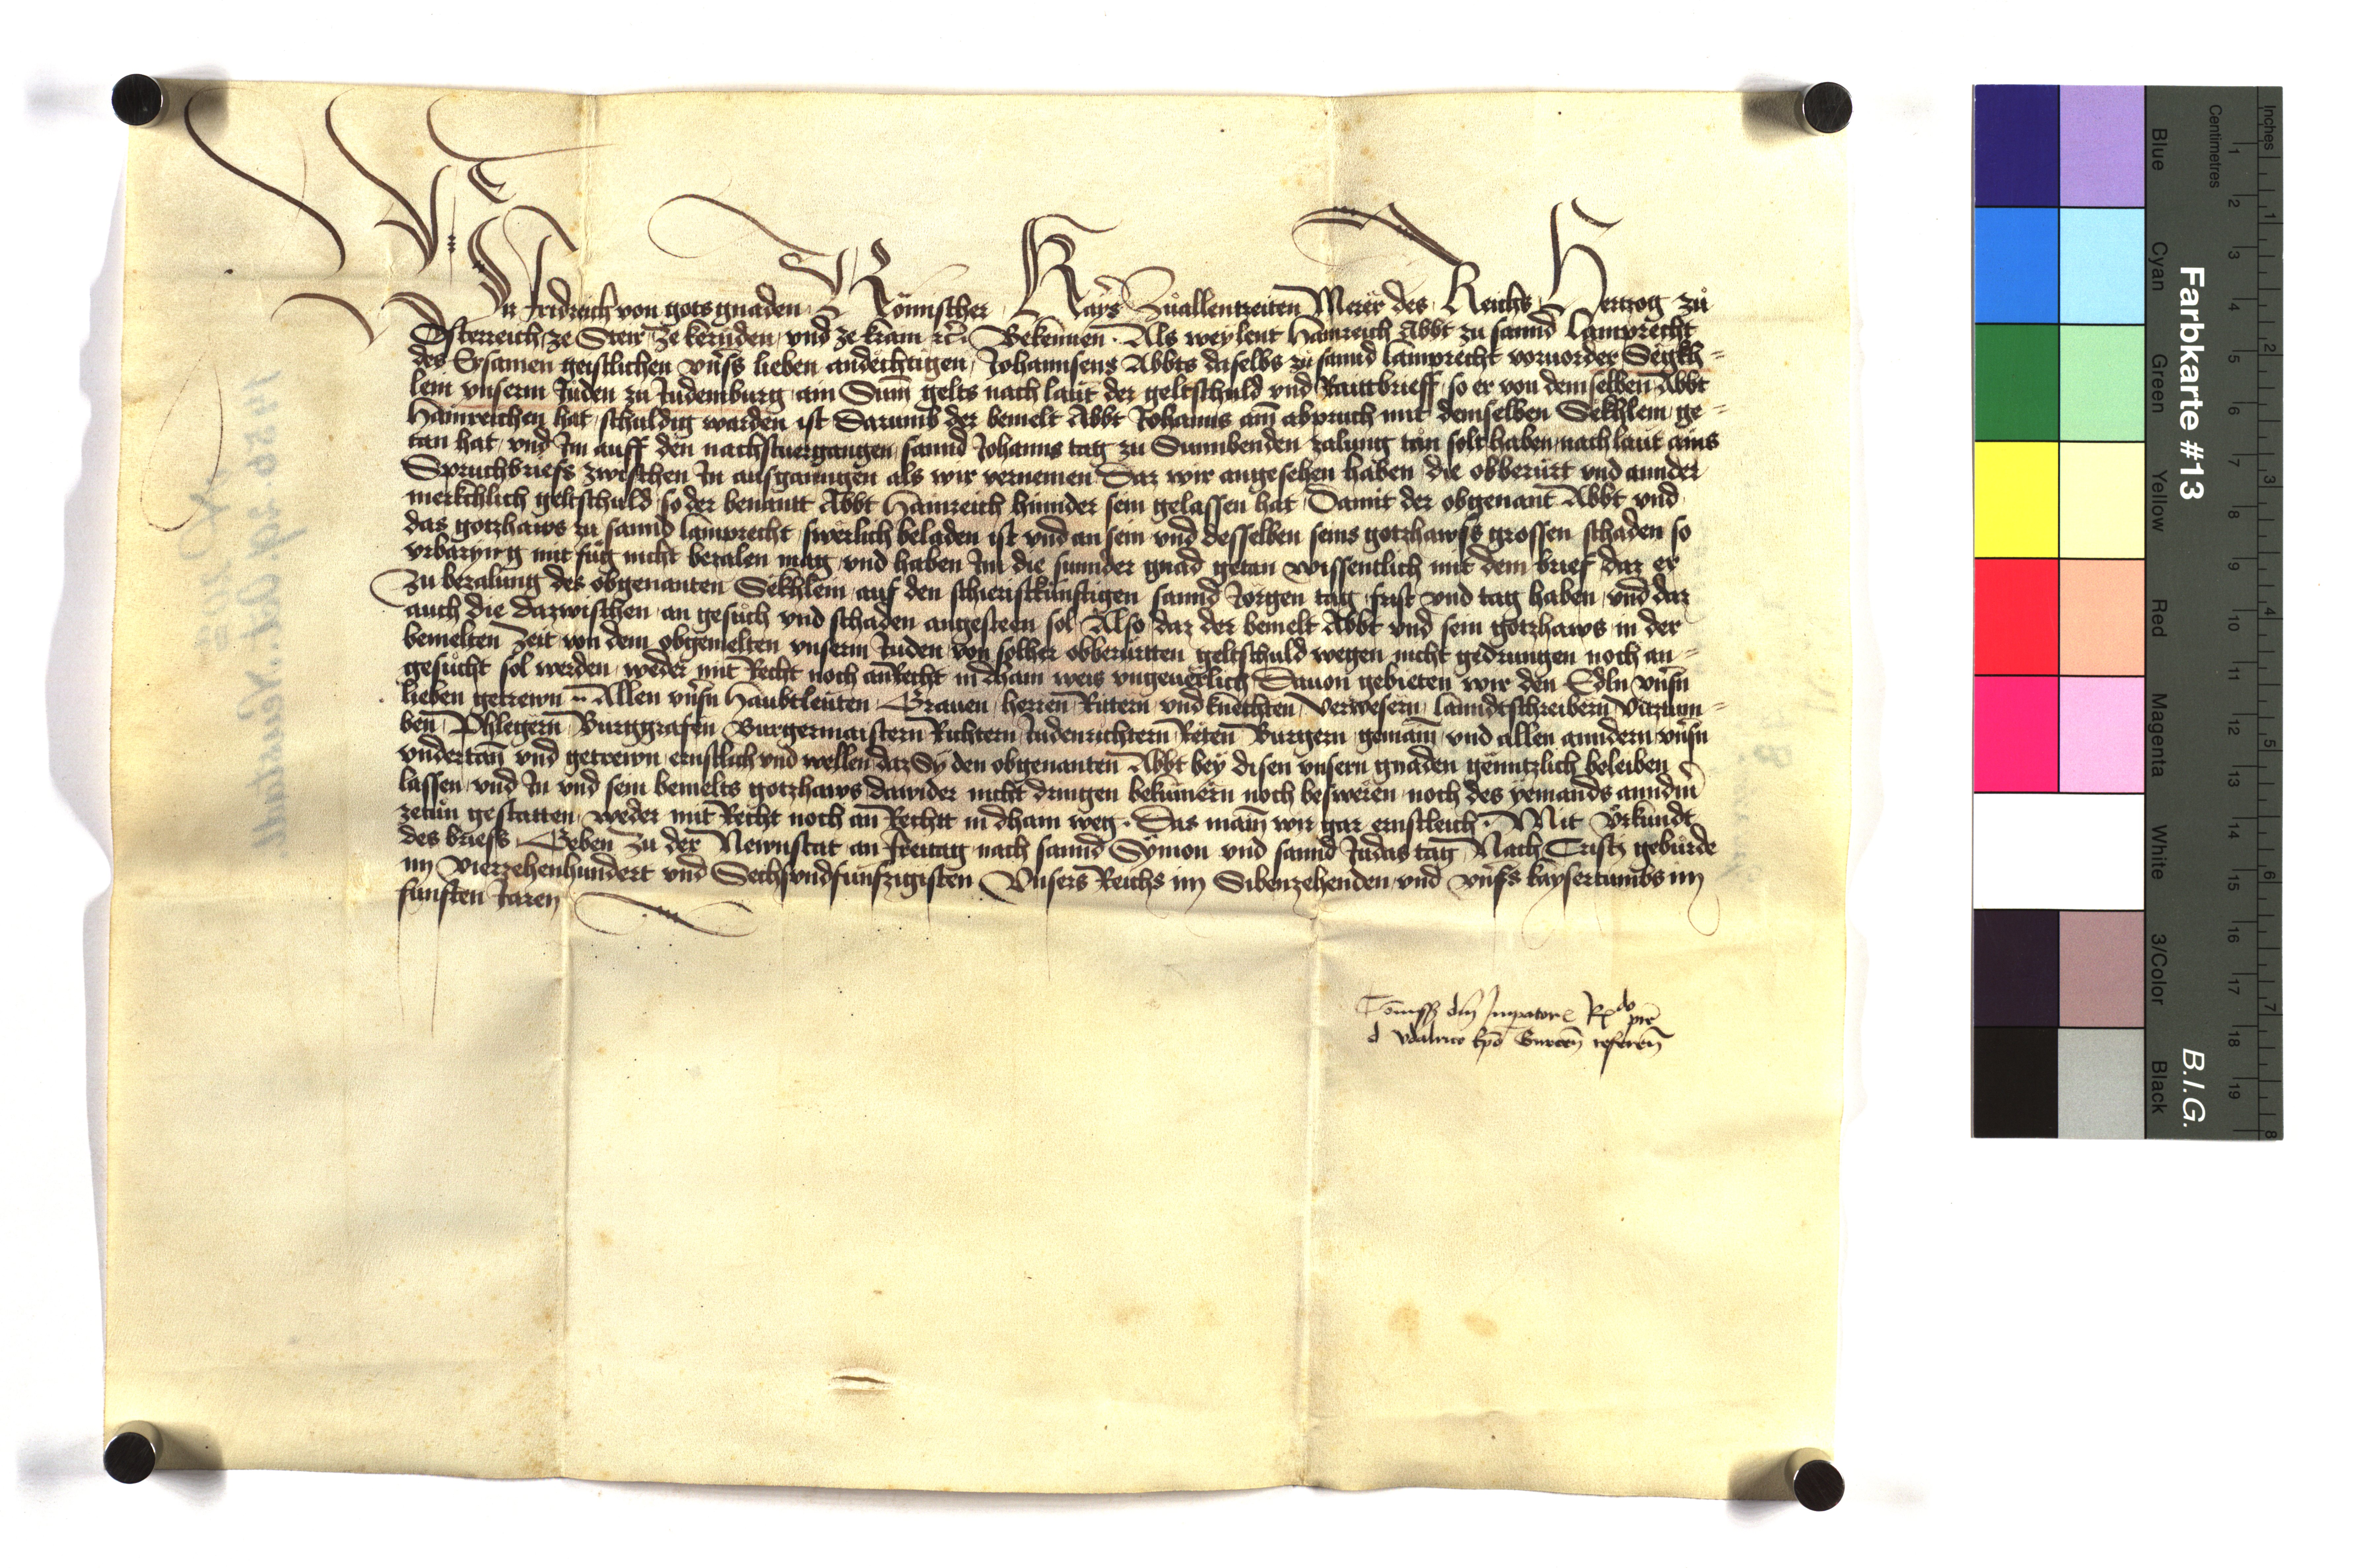 Wir Fridreich von gots gnaden Römischer Kayser Zuallentzeiten Merer des Reichs Hertzog zu
Österreich ze Steir ze kernden und ze krain etc. Bekennen. Als weylent Hainreich Abbt zu sannd Lamprecht
des Ersamen geistlichen unsers lieben andechtigen Johannsens Abbts daselbs zu sannd lamprecht vorvorder Sëgkh-
lein unserm Juden zu Judemburg ain Summ gelts nach laut der geltschuld und Rautbrieff so er von demselben Abbt
Hainreichen hat schuldig warden ist Darumb der bemelt Abbt Johanns ain abpruch mit demselben Sekhlein ge-
tan hat und Im auff den nachstvergangen sannd Johanns tag zu Sunnbenden zalung tan solt haben nach laut ains
Spruchbriefs zwischen In ausgangen als wir vernemen Daz wir angesehen haben die obberürt und annder
merkchlich geltschuld so der benantt Abbt Hainreich hinnder sein gelassen hat Damit der obgenant Abbt und
das gotzhaws zu sannd lamprecht swerlich beladen ist und an sein und desselben seins gotzhawss grossen schaden so
urbaryng mit füg nicht bezalen mag und haben Im die sunnder gnad getan wissentlich mit dem brief daz er
zu bezalung des obgenanten Sekhlein auf den schieristkünftigen sannd Jörgen tag frist und tag haben und daz
auch die dazwischen an gesuch und schaden angesteen sol Also daz der bemelt Abbt und sein gotzhaws in der
bemelten zeit von dem obgemelten unserm Juden von solher obberürtten geltschuld wegen nicht gedrungen noch an-
gesucht sol werden weder mit Recht noch an Recht in dhain weis ungeverlich Davon gebieten wir den Edln unsern
lieben getrewn .. Allen unsern Haubtleuten Graven herren Rittern und knechten Verwesern lanndtschreibern Vitztum-
ben Phlegern Burggrafen Burgermaistern Richtern Judenrichtern Reten Burgern gemain und allen anndern unsern
undertan und getrewn ernstlich und wellen daz Sy den obgenanten Abbt bey disen unsern gnaden genntzlich beleiben
lassen und In und sein bemelts gotzhaws dawider nicht dringen bekümern noch besweren noch des yemands anndern
zetun gestatten weder mit Recht noch an Rechtt in dhain weg. Das main wir gar ernstleich. Mit Urkundt
des briefs Geben zu der Newnstat an Freitag nach sannd Symon und sannd Judas tag Nach Cristi geburde
im Vierzehenhundert und Sechsundfünfzigisten Unsers Reichs im Sibenzehenden und unsers kaysertumbs im
fünften Jaren
Commissio domini Imperatoris Rdo pre
d Udalrico Epo Gurcen referen
Farbkarte #13
B.I.G.
Inches
Centimetres
Blue
Cyan
Green
Yellow
Red
Magenta
White
3/Color
Black
1 2 3 4 5 6 7 8 9 10 11 12 13 14 15 16 17 18 19
1 2 3 4 5 6 7 8